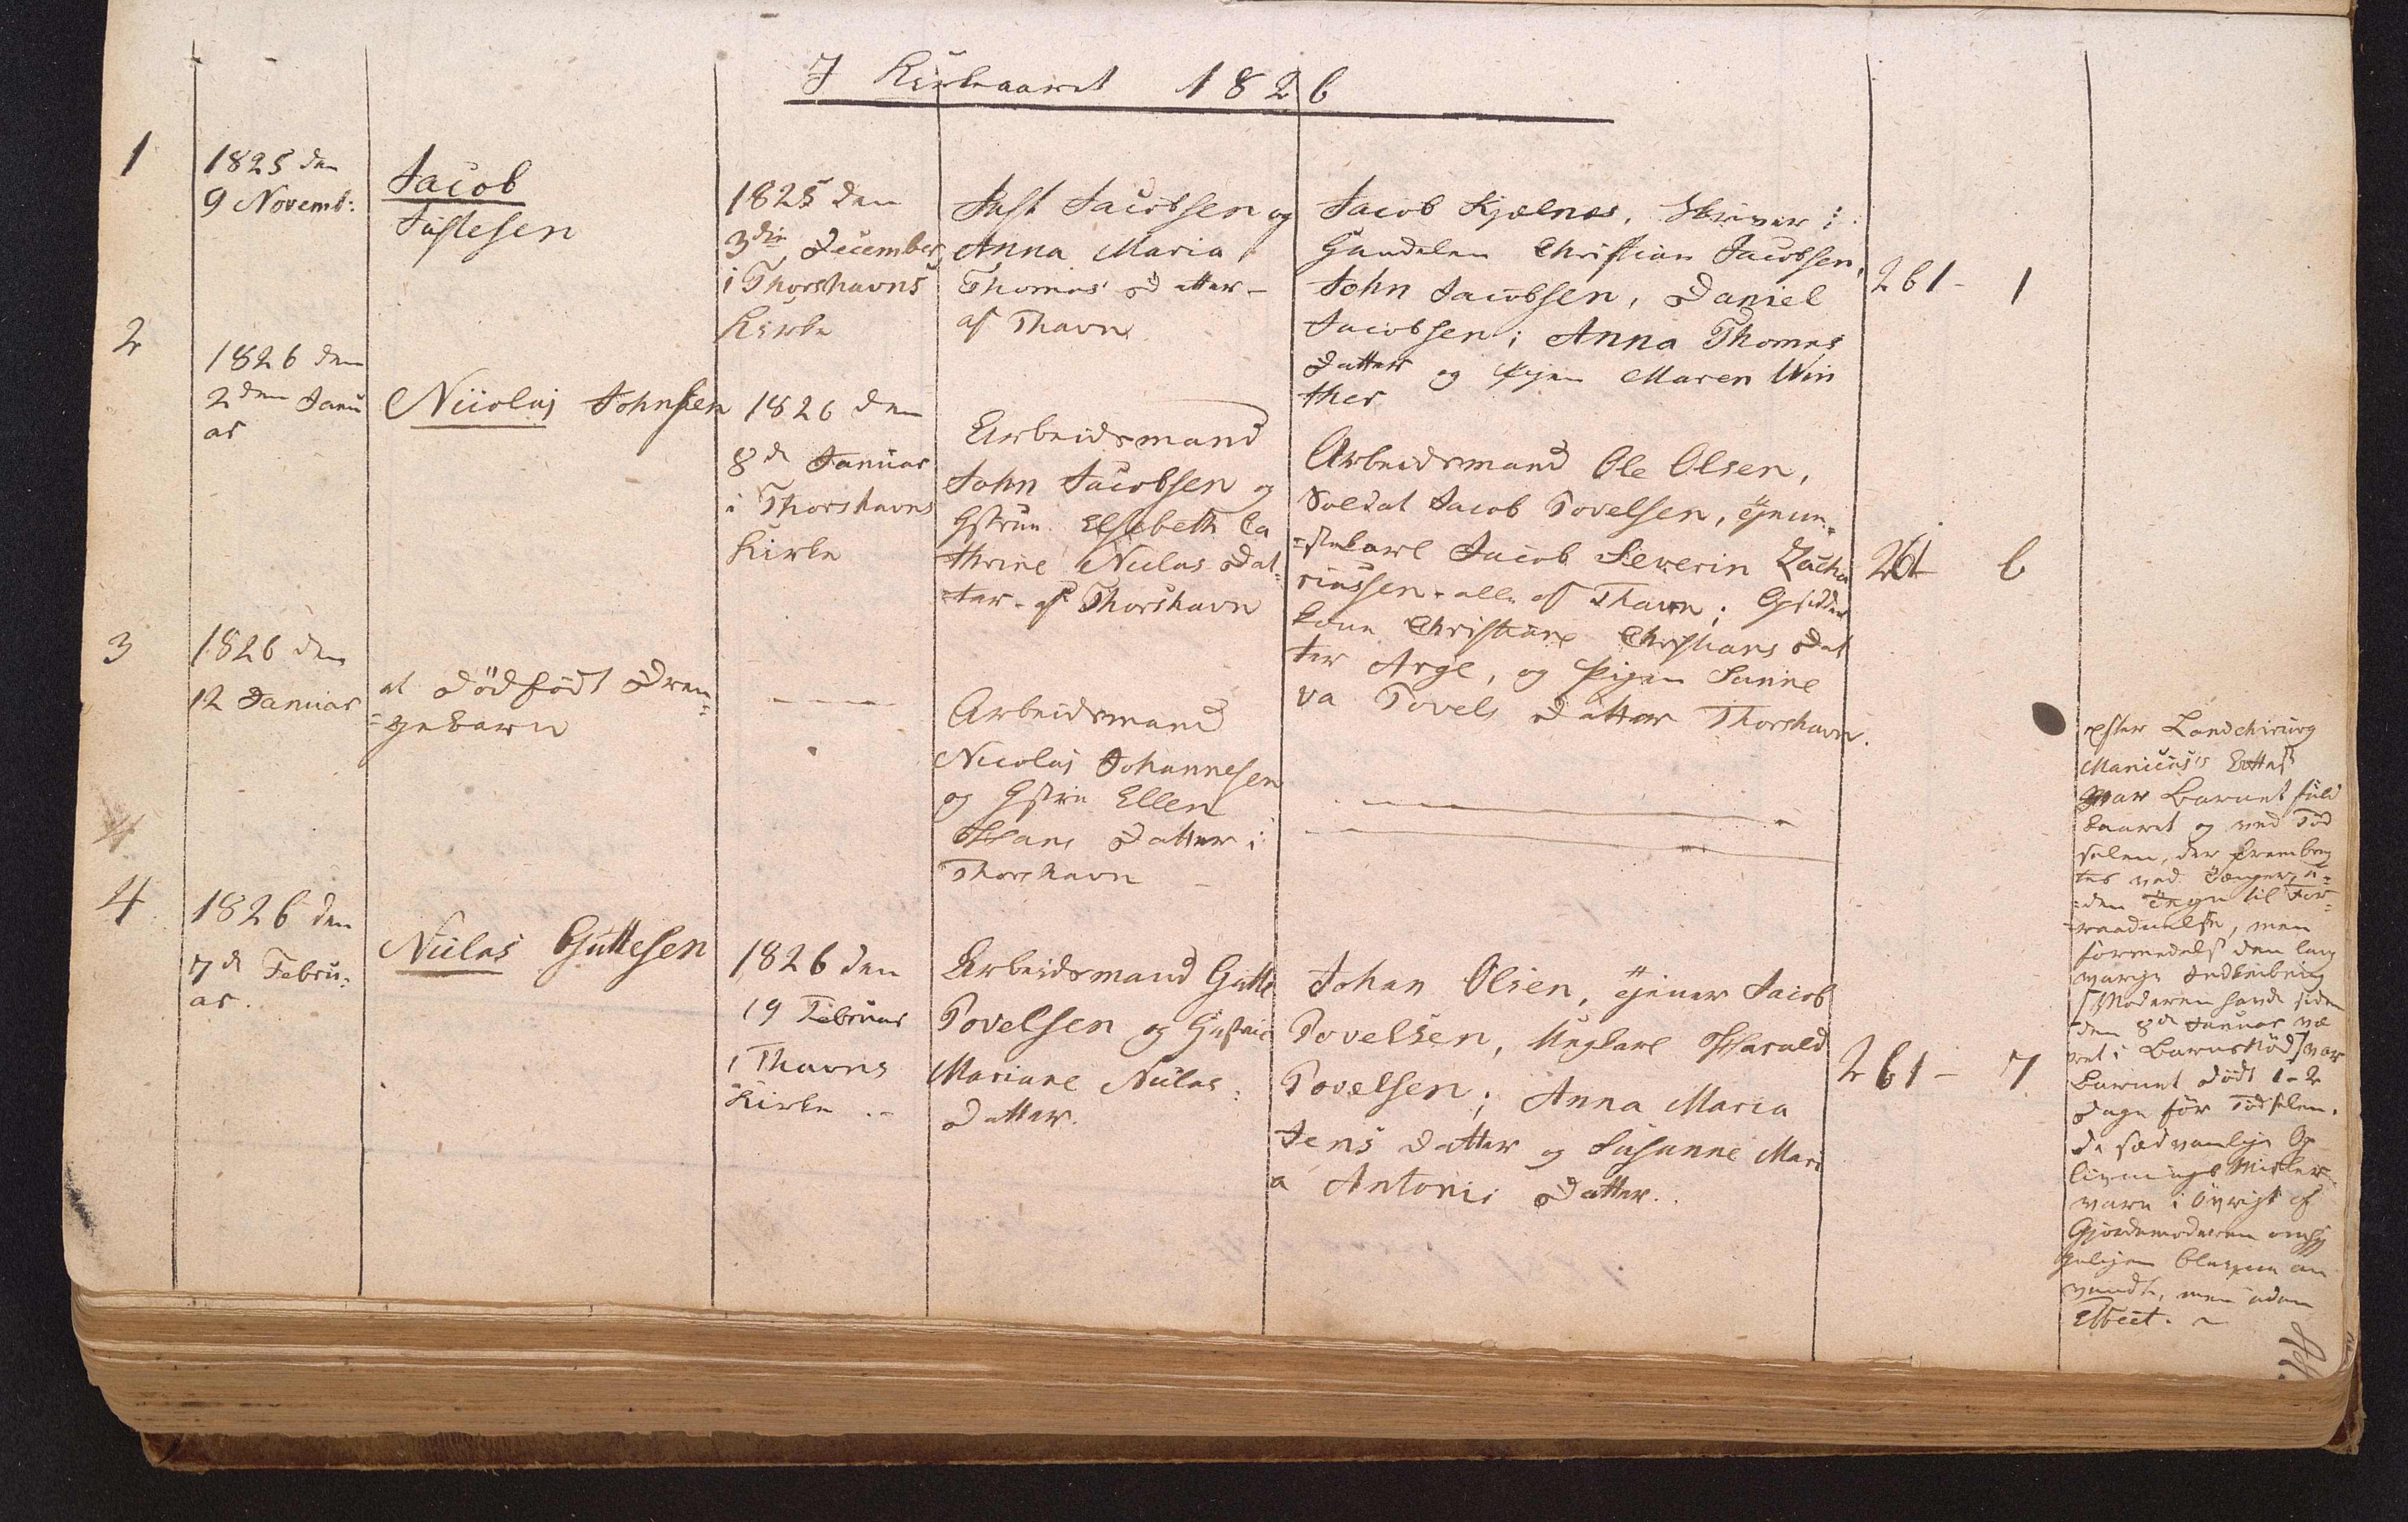 I Kirkeaaret 1826
1
1825 den
9 Novemb:
Jacob
Justesen
1825 den
3die December
i Thorshavns
Kirke
Just Jacobsen og
Anna Maria
Thomas' Datter -
af Thavn
Jacob Kjælnes, Skriver i
Handelen Christian Jacobsen,
John Jacobsen, Daniel
Jacobsen; Anna Thomas
Datter og Pigen Maren Win
ther
261 - 1
2
1826 den
2den Janu
ar
Nicolaj Johnsen
1826 den
8de Januar
i Thorshavns
Kirke
Arbeidsmand
John Jacobsen og
Hstrue Elsebeth Ca
thrine Niclas Dat=
=ter - af Thorshavn
Arbeidsmand Ole Olsen,
Soldat Jacob Povelsen, Tjene=
=stekarl Jacob Severin Zacha
riassen - alle af Thavn; Opsidder
kone Christiane Christians Dat
ter Arge, og Pigen Sanne
va Povels Datter Thorshavn.
261 6
3
1826 den
12 Januar
et dødfødt Dren=
=gebarn
Arbeidsmand
Nicolaj Johannesen
og Hstru Ellen
Hans Datter i
Thorshavn -
efter Landchirurg
Manicus's Attest
var Barnet fuld
baaret og ved Fød
selen, der frembrag
tes ved Tænger, u=
=den Tegn til For=
=raadnelse, men
formedelst den lang
varige Indkiling
/:Moderen havde siden
den 8de Januar væ
ret i Barnsnød:/ var
Barnet dødt 1-2
Dage før Fødselen.
de sædvanlige Op
livnings Midler
vare i øvrigt af
Gjordemoderen omhyg
geligen blevne an
vendte, men uden
Effect. -
4
4
1826 den
7de Febru=
ar.
Niclas Guttesen
1826 den
19 Februar
i Thavns
Kirke . -
Arbeidsmand Gutte
Povelsen og Hustrue
Mariane Niclas=
Datter.
Johan Olsen, Tjener Jacob
Povelsen, Ungkarl Harald
Povelsen; Anna Maria
Jens Datter og Susanne Mari
a Antonis Datter.
261 - 7